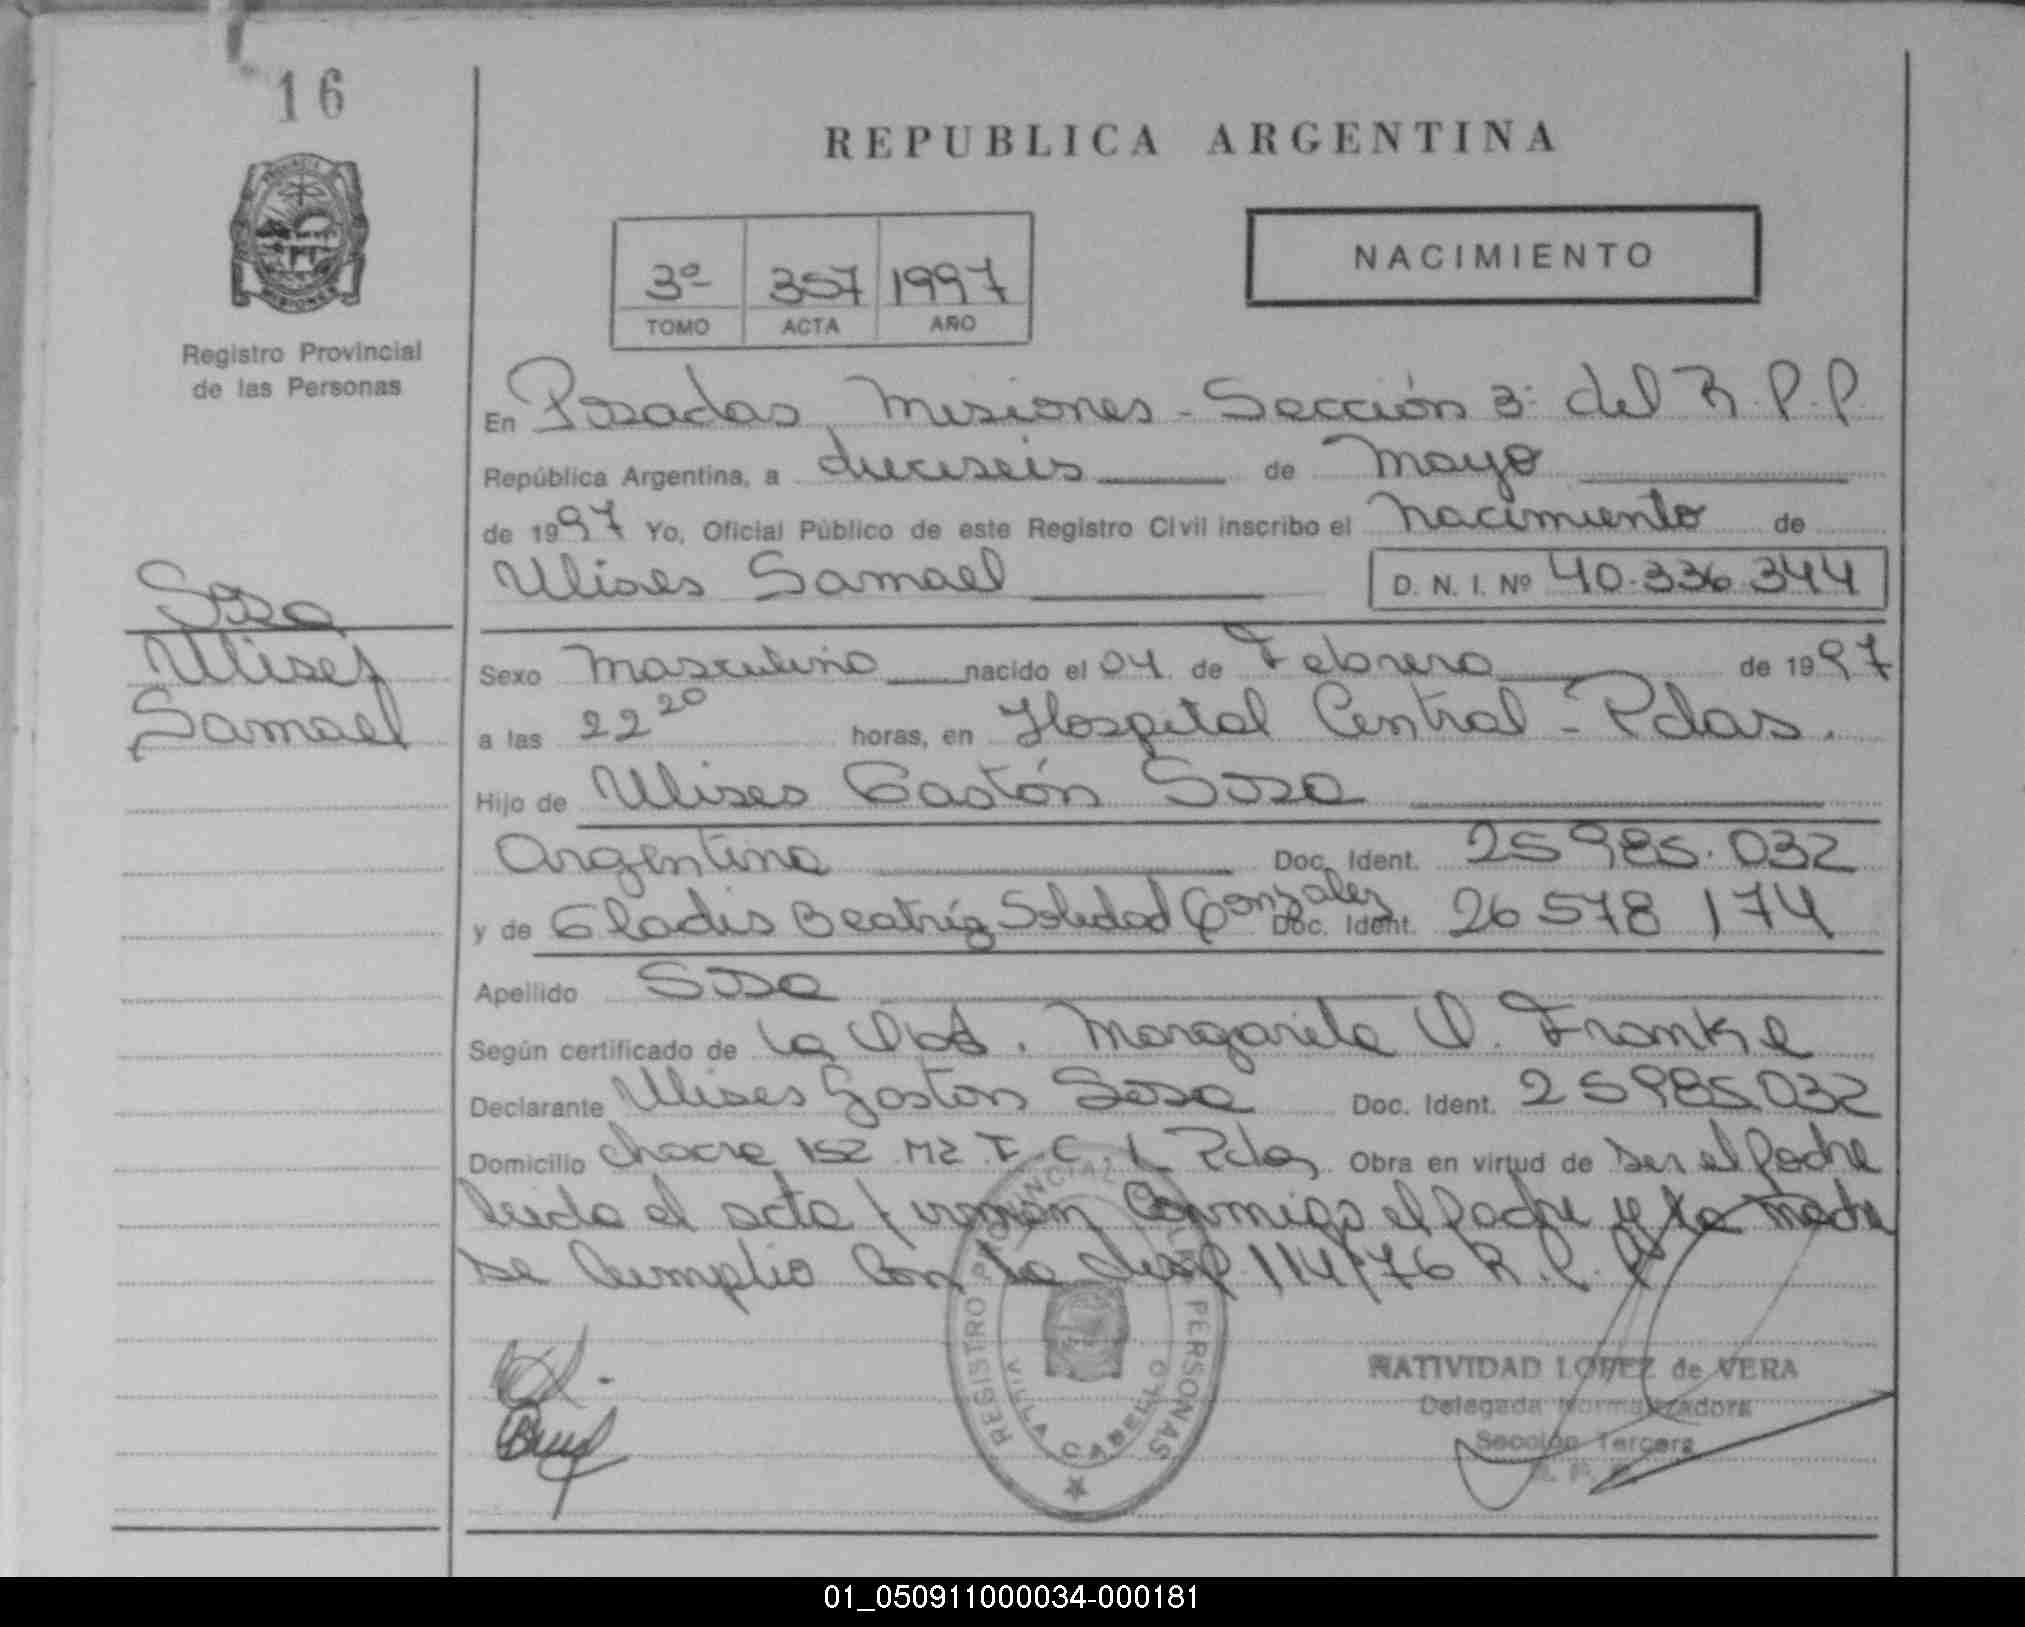 16
REPUBLICA ARGENTINA
NACIMIENTO
3º 357 1997
TOMO ACTA AÑO
Registro Provincial
de las Personas
En Posadas Misiones - Sección 3ª del R.P.P.
República Argentina, a dieciseis de Mayo
de 1997 Yo, Oficial Público de este Registro Civil inscribo el nacimiento de
Ulises Samael D. N. I. Nº 40.336.344
Sosa
Ulises
Samael
Sexo Masculino nacido el 04 de Febrero de 1997
a las 22 20 horas, en Hospital Central - Pdas.
Hijo de Ulises Gastón Sosa
Argentina Doc. Ident. 25985.032
y de Gladis Beatríz Soledad Gonzalez Doc. Ident. 26 578 174
Apellido Sosa
Según certificado de la Obst. Margarita O. Franke
Declarante Ulises Gaston Sosa Doc. Ident. 25985032
Domicilio chacra 152 Mz I. C. 1 Pdas Obra en virtud de ser el padre
leida el acta firman conmigo el padre y la madre
se cumplio con la disp 114/76 R.P.P.
REGISTRO PROVINCIAL DE LAS PERSONAS
VILLA CABELLO
NATIVIDAD LOPEZ de VERA
Delegada Normalizadora
Sección Tercera
01_050911000034-000181